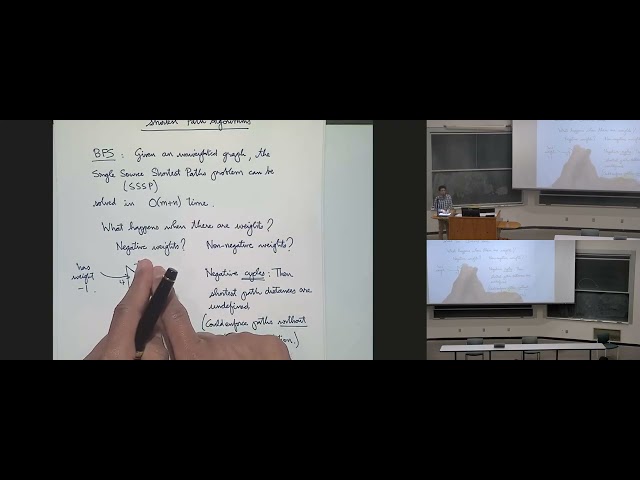 Shortest Path Algorithms
BFS : Given an unweighted graph, the
Single Source Shortest Paths problem can be
(SSSP)
solved in O(m+n) time.
What happens when there are weights?
Negative weights? Non-negative weights?
has
weight
-1.
4
Negative cycles : Then
shortest path distances are
undefined
(Could enforce paths without